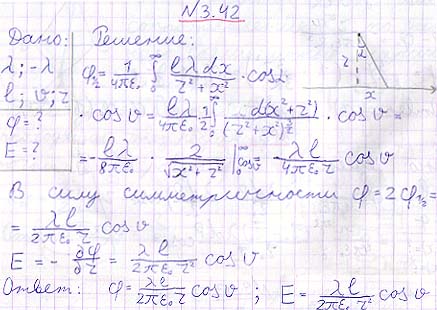 №3.42
Дано: Решение:
λ; -λ
l; υ; r
φ = ?
E = ?
φ½ = 1/4πε₀ ∫₀^∞ lλ dx / r² + x² · cos α ·
· cos υ = lλ/4πε₀ · 1/2 ∫₀^∞ d(x² + r²) / (r² + x²)^3/2 · cos υ =
= - lλ/8πε₀ · 2/√x² + r² |₀^∞ cos υ = λl/4πε₀ r cos υ
В силу симметричности φ = 2φ½ =
= λl/2πε₀ r cos υ
E = - ∂φ/∂r = λl/2πε₀ r² cos υ
Ответ: φ = λl/2πε₀ r cos υ ; E = λl/2πε₀ r² cos υ
r α
x